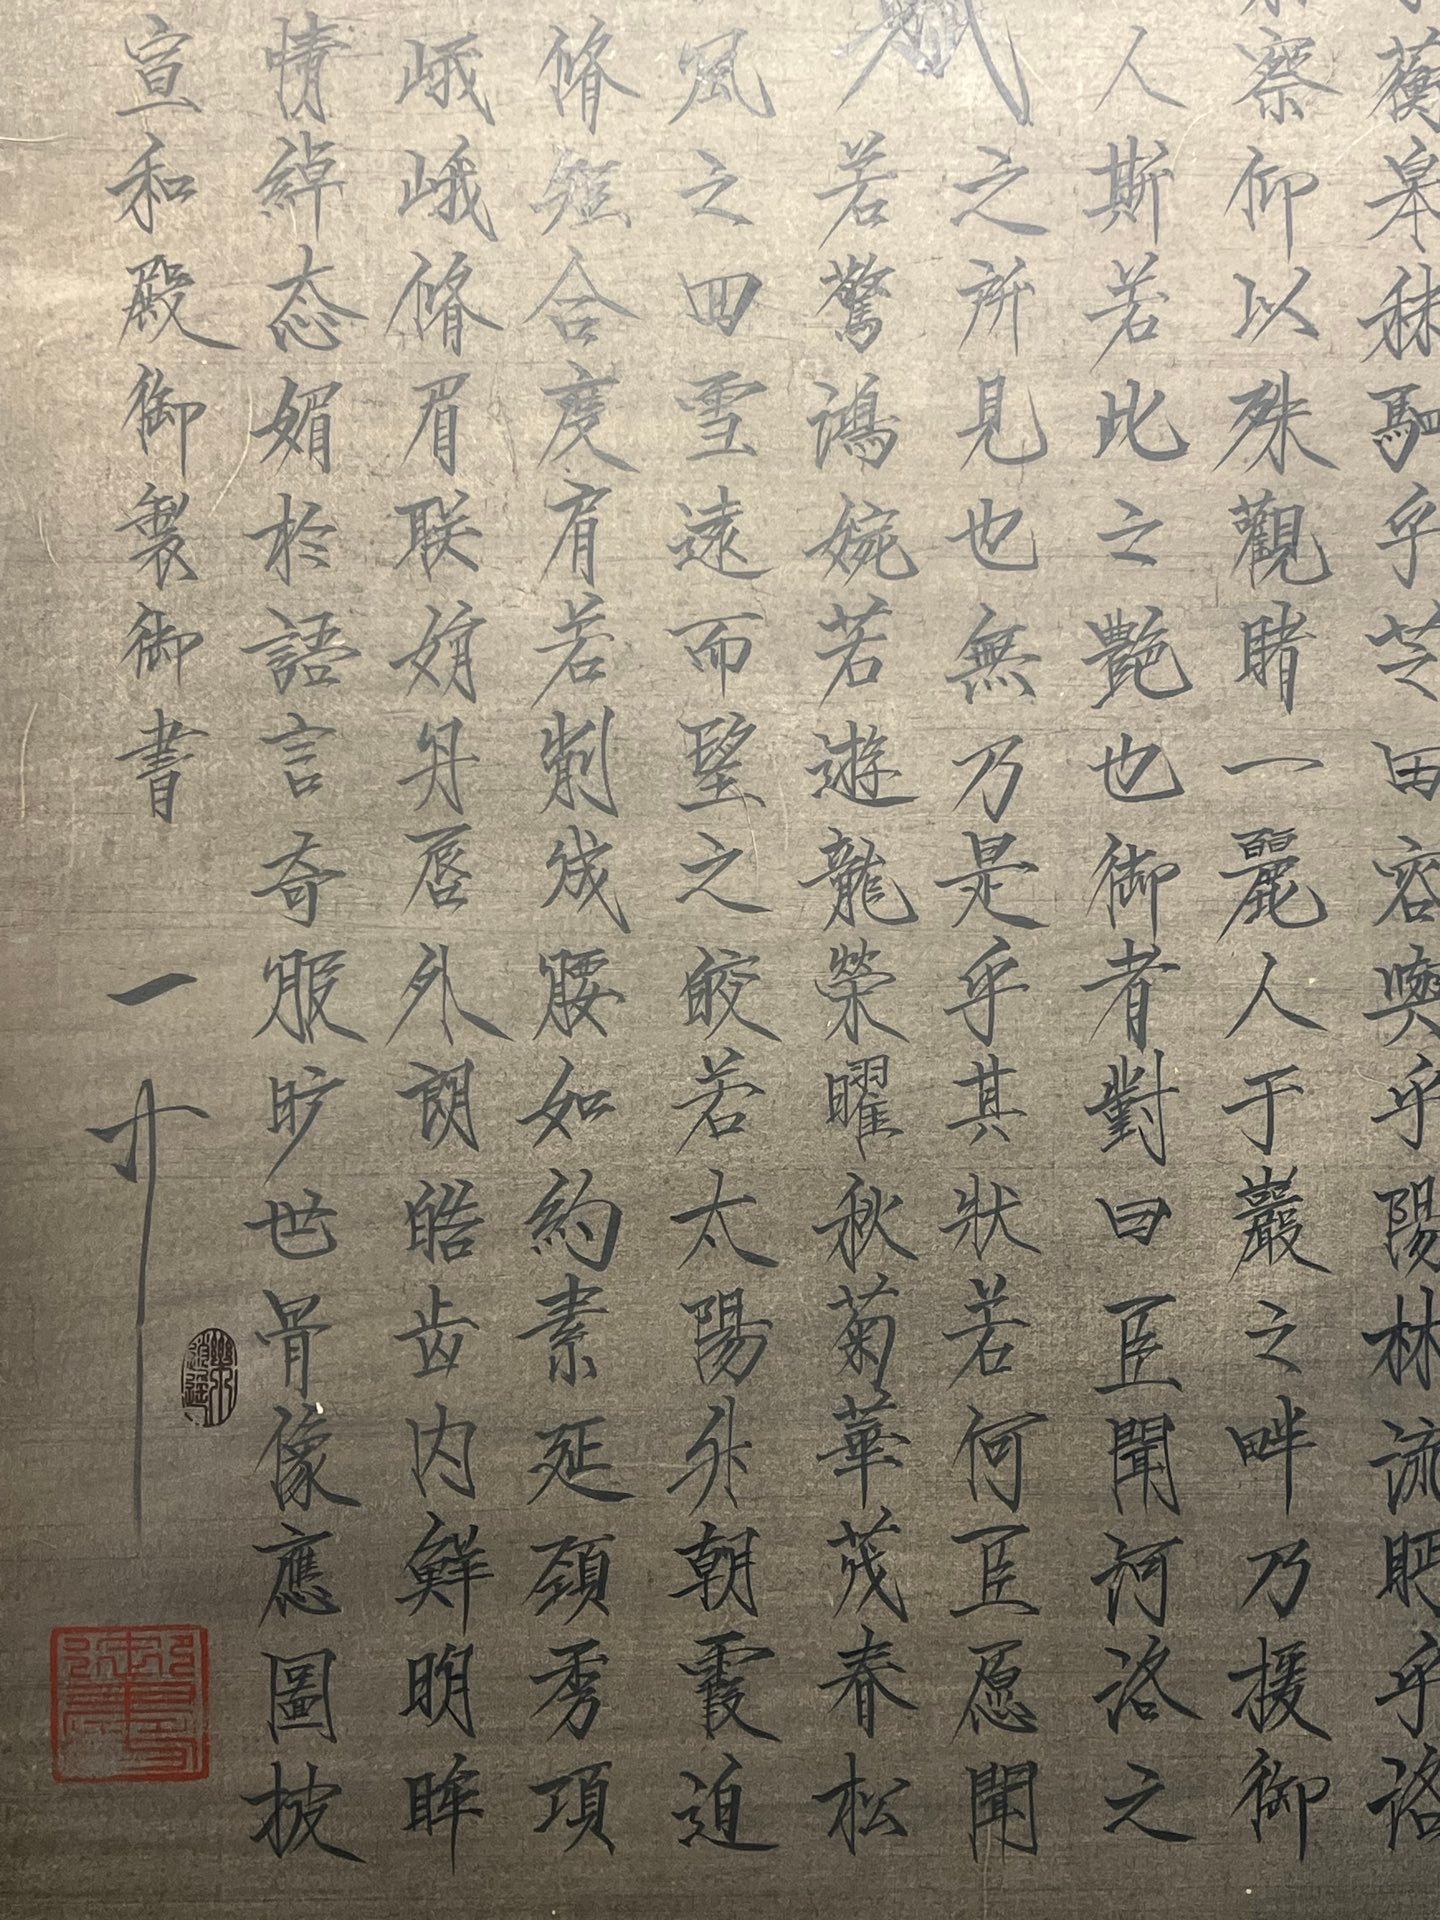 蘅皋秣駟乎芝田容與乎陽林流眄乎洛
察仰以殊觀睹一麗人于巖之畔乃援御
人斯若此之艷也御者對曰臣聞河洛之
之所見也無乃是乎其狀若何臣愿聞
若驚鴻婉若遊龍榮曜秋菊華茂春松
風之回雪遠而望之皎若太陽升朝霞迫
脩短合度肩若削成腰如約素延頸秀項
峨峨脩眉联娟丹唇外朗皓齿内鮮明眸
情綽态媚於語言奇服旷世骨像應圖披
宣和殿御製御書